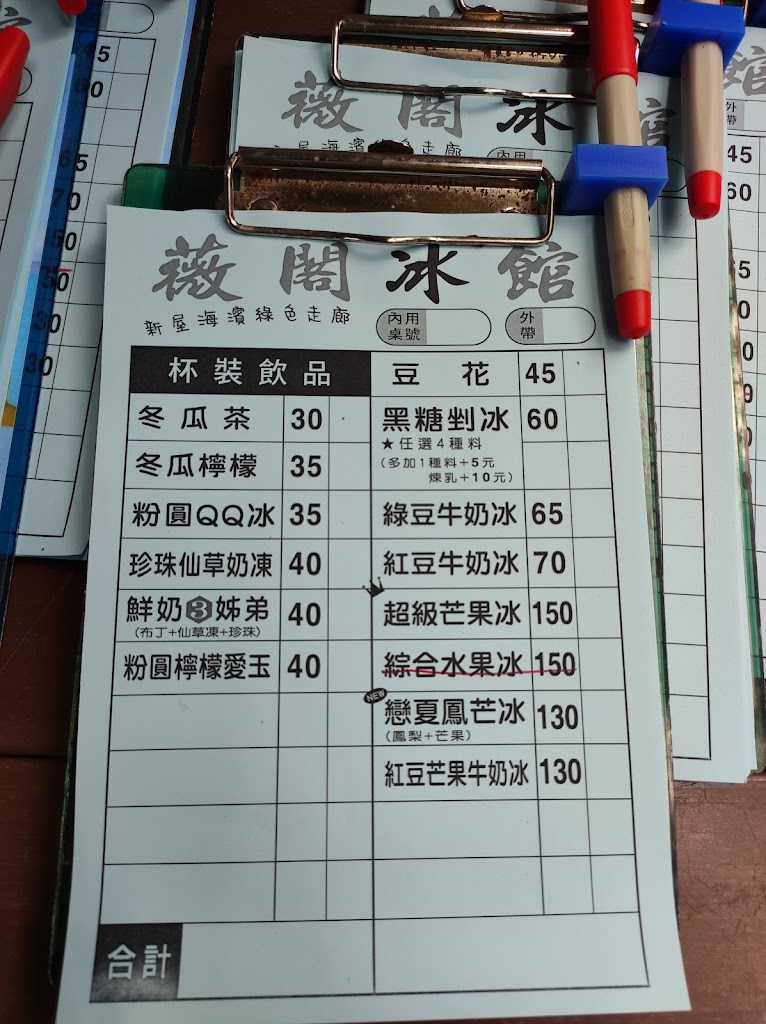 薇閣冰館
新屋海濱綠色走廊
內用桌號
外帶
杯裝飲品
冬瓜茶 30
冬瓜檸檬 35
粉圓QQ冰 35
珍珠仙草奶凍 40
鮮奶3姊弟 40
(布丁+仙草凍+珍珠)
粉圓檸檬愛玉 40
豆花 45
黑糖剉冰 60
★任選4種料
(多加1種料+5元
煉乳+10元)
綠豆牛奶冰 65
紅豆牛奶冰 70
超級芒果冰 150
綜合水果冰 150
NEW
戀夏鳳芒冰 130
(鳳梨+芒果)
紅豆芒果牛奶冰 130
合計
薇閣冰館
海濱綠色走廊
內用
館
外帶
45
60
45
60
65
70
50
50
30
30